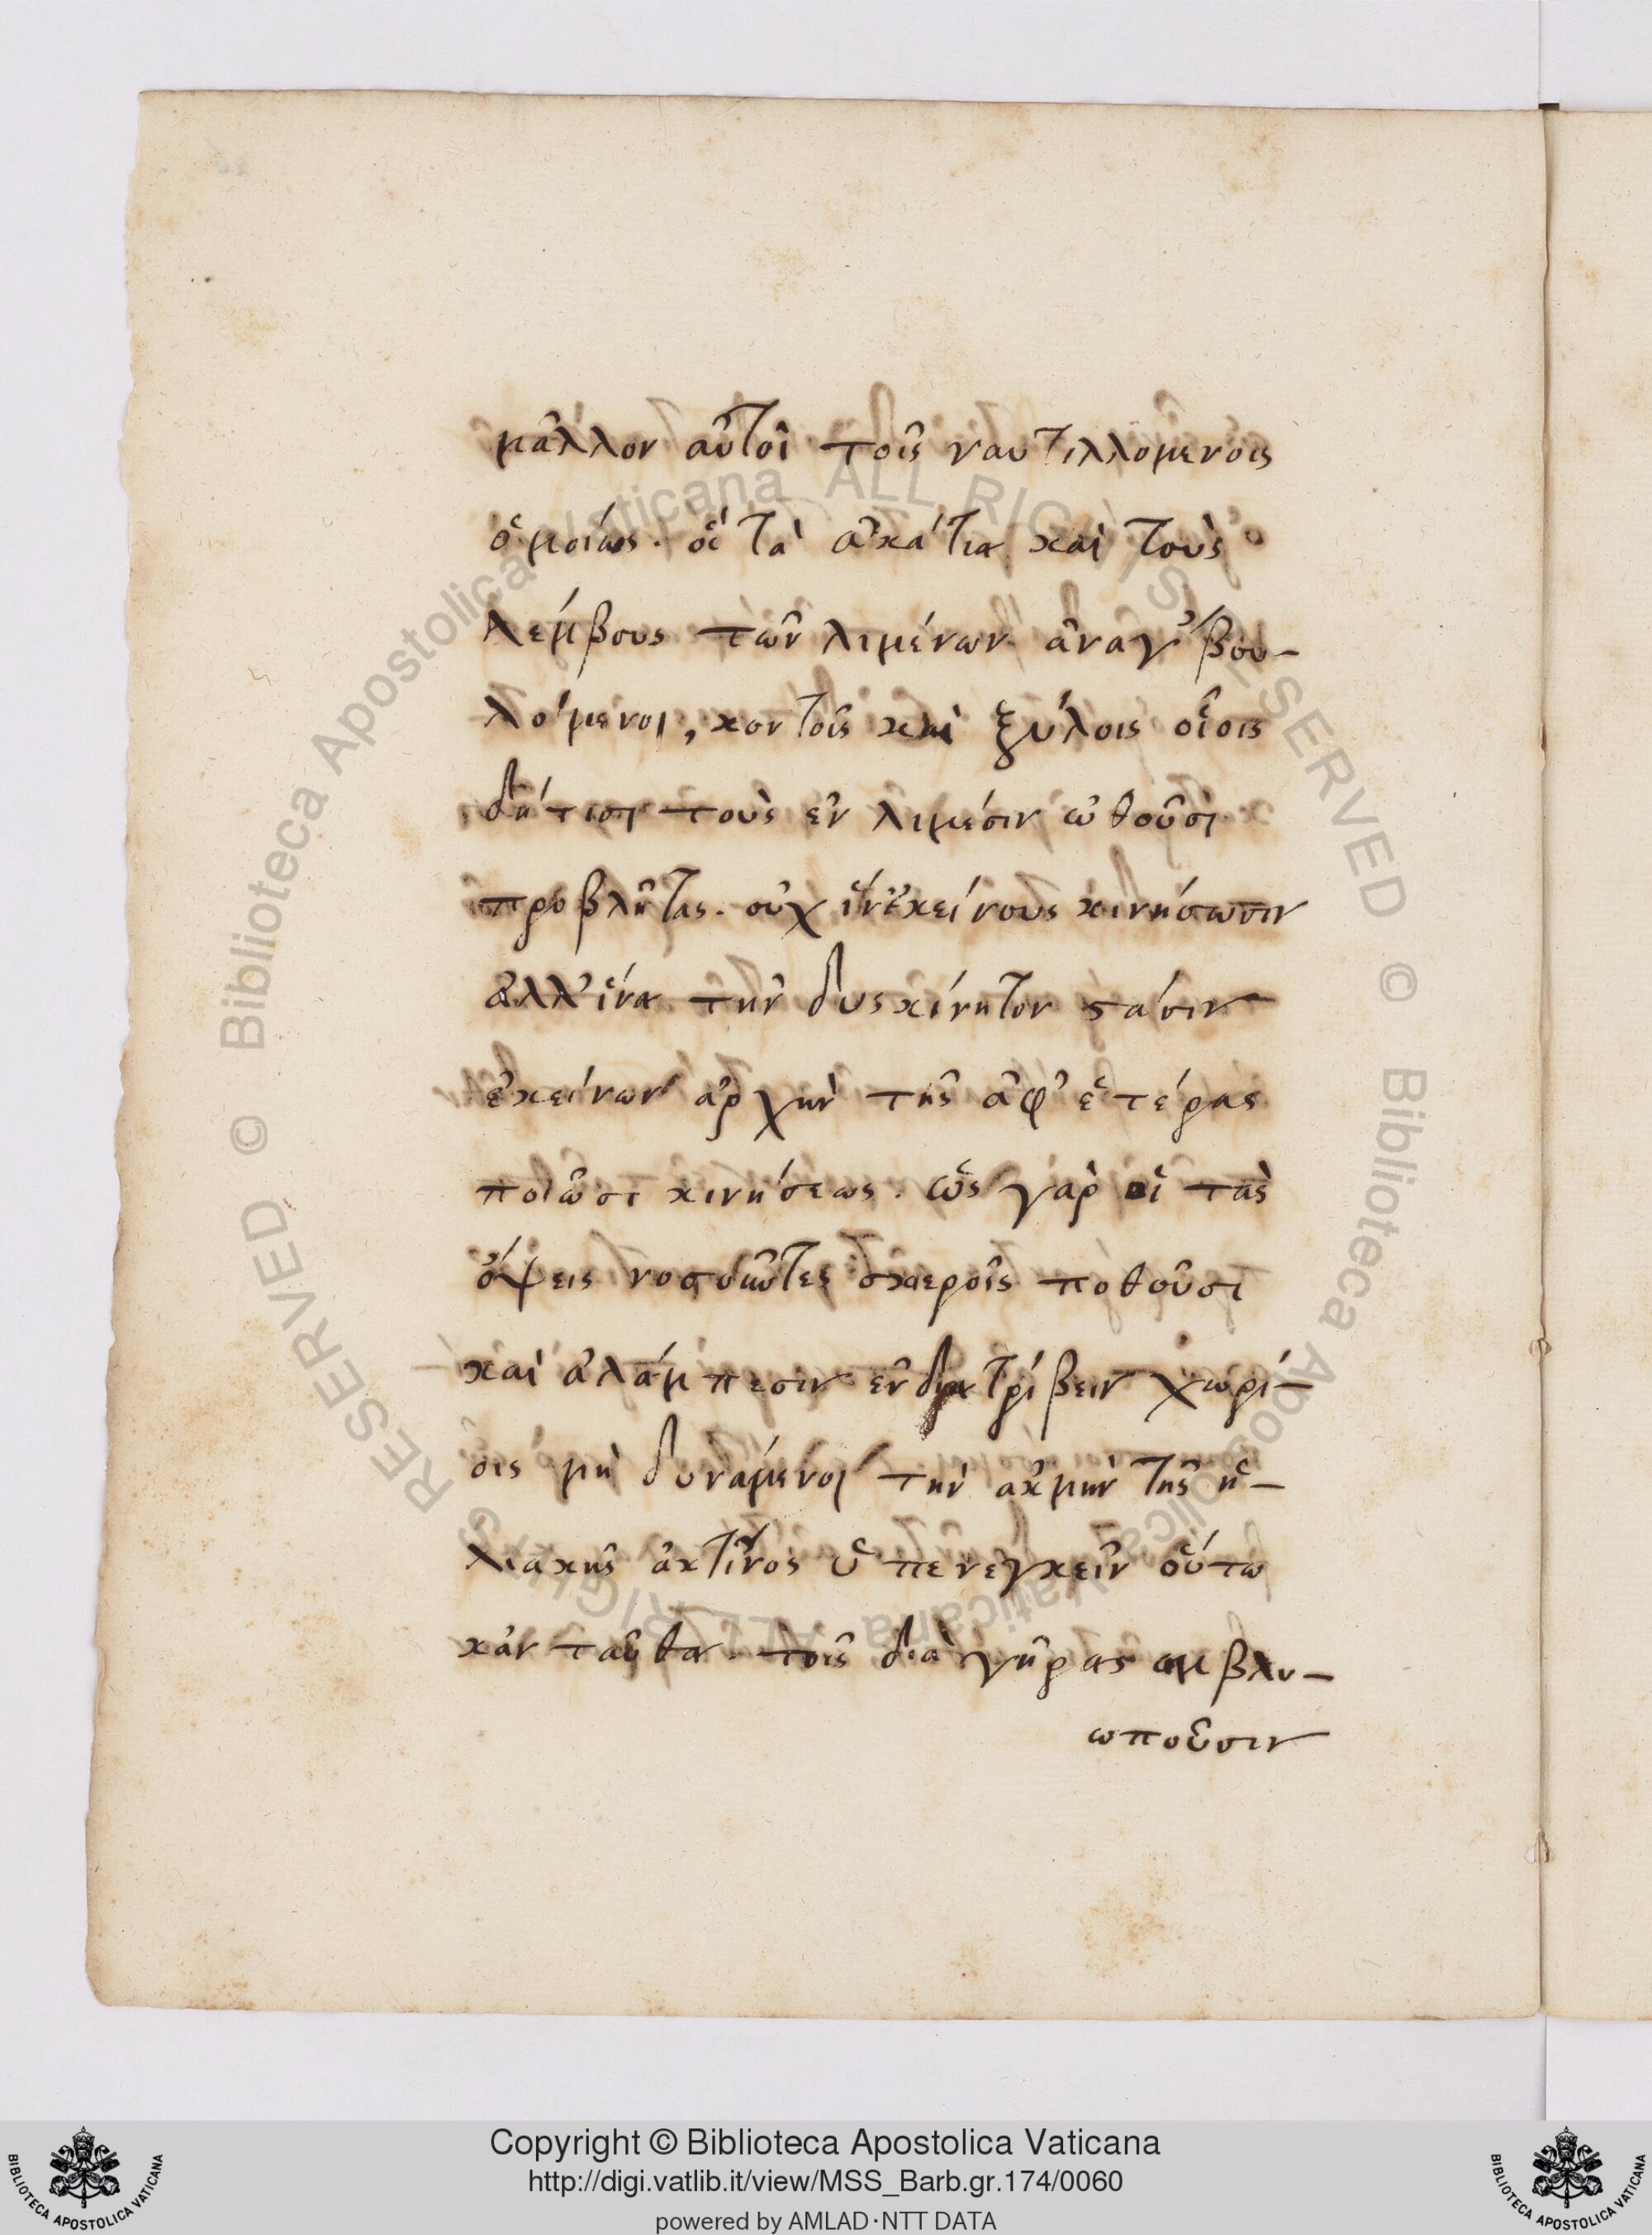 μᾶλλον αὐτοὶ τοῖς ναυτιλλομένοις
ὁμοίως. οἳ τὰ ἀκάτια καὶ τοὺς
λέμβους τῶν λιμένων ἀναγ' βου-
λόμενοι, κοντοῖς καὶ ξύλοις οἷοις
δήτισι τοὺς ἐν λιμέσιν ὠθοῦσι
προβλῆτας. οὐχ ἵν' ἐκείνους κινήσωσιν
ἀλλ' ἵνα τὴν δυσκίνητον στάσιν
ἐκείνων ἀρχὴν τῆς ἀφ' ἑτέρας
ποιῶσι κινήσεως. ὡς γὰρ οἱ τὰς
ὄψεις νοσοῦντες σκιεροῖς ποθοῦσι
καὶ ἀλάμπεσιν ἐνδιατρίβειν χωρί-
οις μὴ δυνάμενοι τὴν ἀκμὴν τῆς ἡ-
λιακῆς ἀκτῖνος ὑπενεγκεῖν οὕτω
κἀνταῦθα. τοῖς διὰ γῆρας αμβλυ-
ωποῦσιν
Copyright © Biblioteca Apostolica Vaticana
http://digi.vatlib.it/view/MSS_Barb.gr.174/0060
powered by AMLAD·NTT DATA
BIBLIOTECA APOSTOLICA VATICANA
BIBLIOTECA APOSTOLICA VATICANA
© Biblioteca Apostolica Vaticana ALL RIGHTS RESERVED © Biblioteca Apostolica Vaticana ALL RIGHTS RESERVED